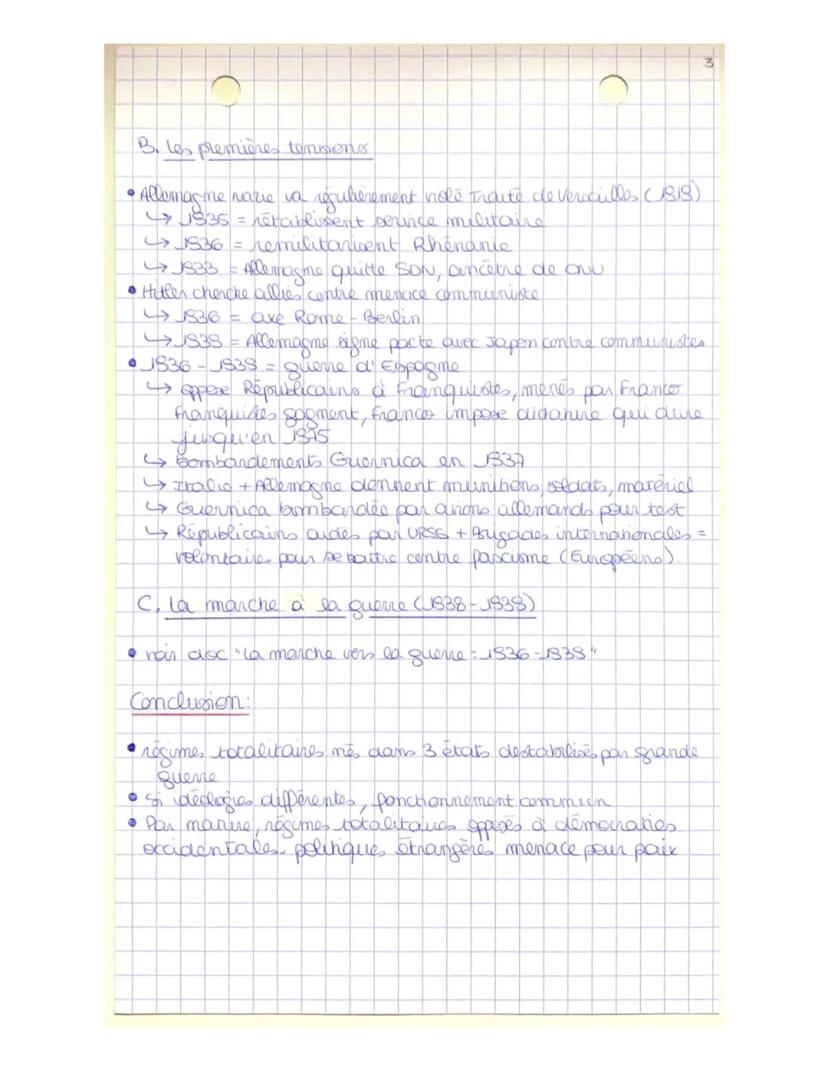 3
B. les premières tensions
• Allemagne nazie va régulièrement violé Traité de Versailles (1919)
↳ 1935 = rétablissent service militaire
↳ 1936 = remilitarisent Rhénanie
↳ 1933 = Allemagne quitte SDN, ancêtre de ONU
• Hitler cherche alliés contre menace communiste
↳ 1936 = axe Rome-Berlin
↳ 1939 = Allemagne signe pacte avec Japon contre communistes
• 1936-1939 = guerre d'Espagne
↳ oppose Républicains à Franquistes, menés par Franco
franquistes gagnent, franco impose dictature qui dure
jusqu'en 1975
↳ Bombardements Guernica en 1937
↳ Italie + Allemagne donnent munitions, soldats, matériel
↳ Guernica bombardée par avions allemands pour test
↳ Républicains aidés par URSS + Brigades internationales =
volontaires pour se battre contre fascisme (Européens).
C. la marche à la guerre (1938-1939)
• voir doc "la marche vers la guerre : 1936-1939"
Conclusion:
• régimes totalitaires nés dans 3 états destabilisés par grande
guerre
• Si idéologies différentes, fonctionnement commun
• Par nature, régimes totalitaires opposés à démocraties
occidentales. politiques étrangères menace pour paix